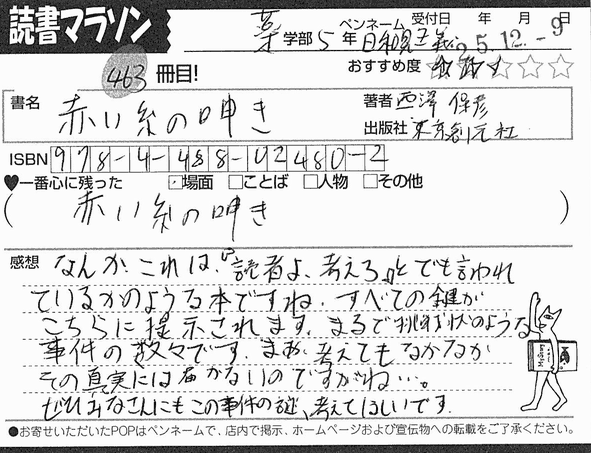 読書マラソン
薬学部5年 ペンネーム 日和見主義 受付日 年 月 日
25.12.-9
463冊目! おすすめ度 ☆☆☆☆☆
書名 赤い糸の呻き 著者 西澤 保彦
出版社 東京創元社
ISBN 978-4-488-02480-2
♥一番心に残った □場面 □ことば □人物 □その他
(赤い糸の呻き)
感想 なんか、これは、『読者よ、考えろ』とでも言われ
ているかのような本ですね。すべての鍵が
こちらに提示されます。まるで挑戦状のような
事件の数々です。まぁ、考えてもなかなか
その真実には届かないのですがね…。
ぜひみなさんにもこの事件の謎、考えてほしいです。
●お寄せいただいたPOPはペンネームで、店内で掲示、ホームページおよび宣伝物への転載をご了承ください。